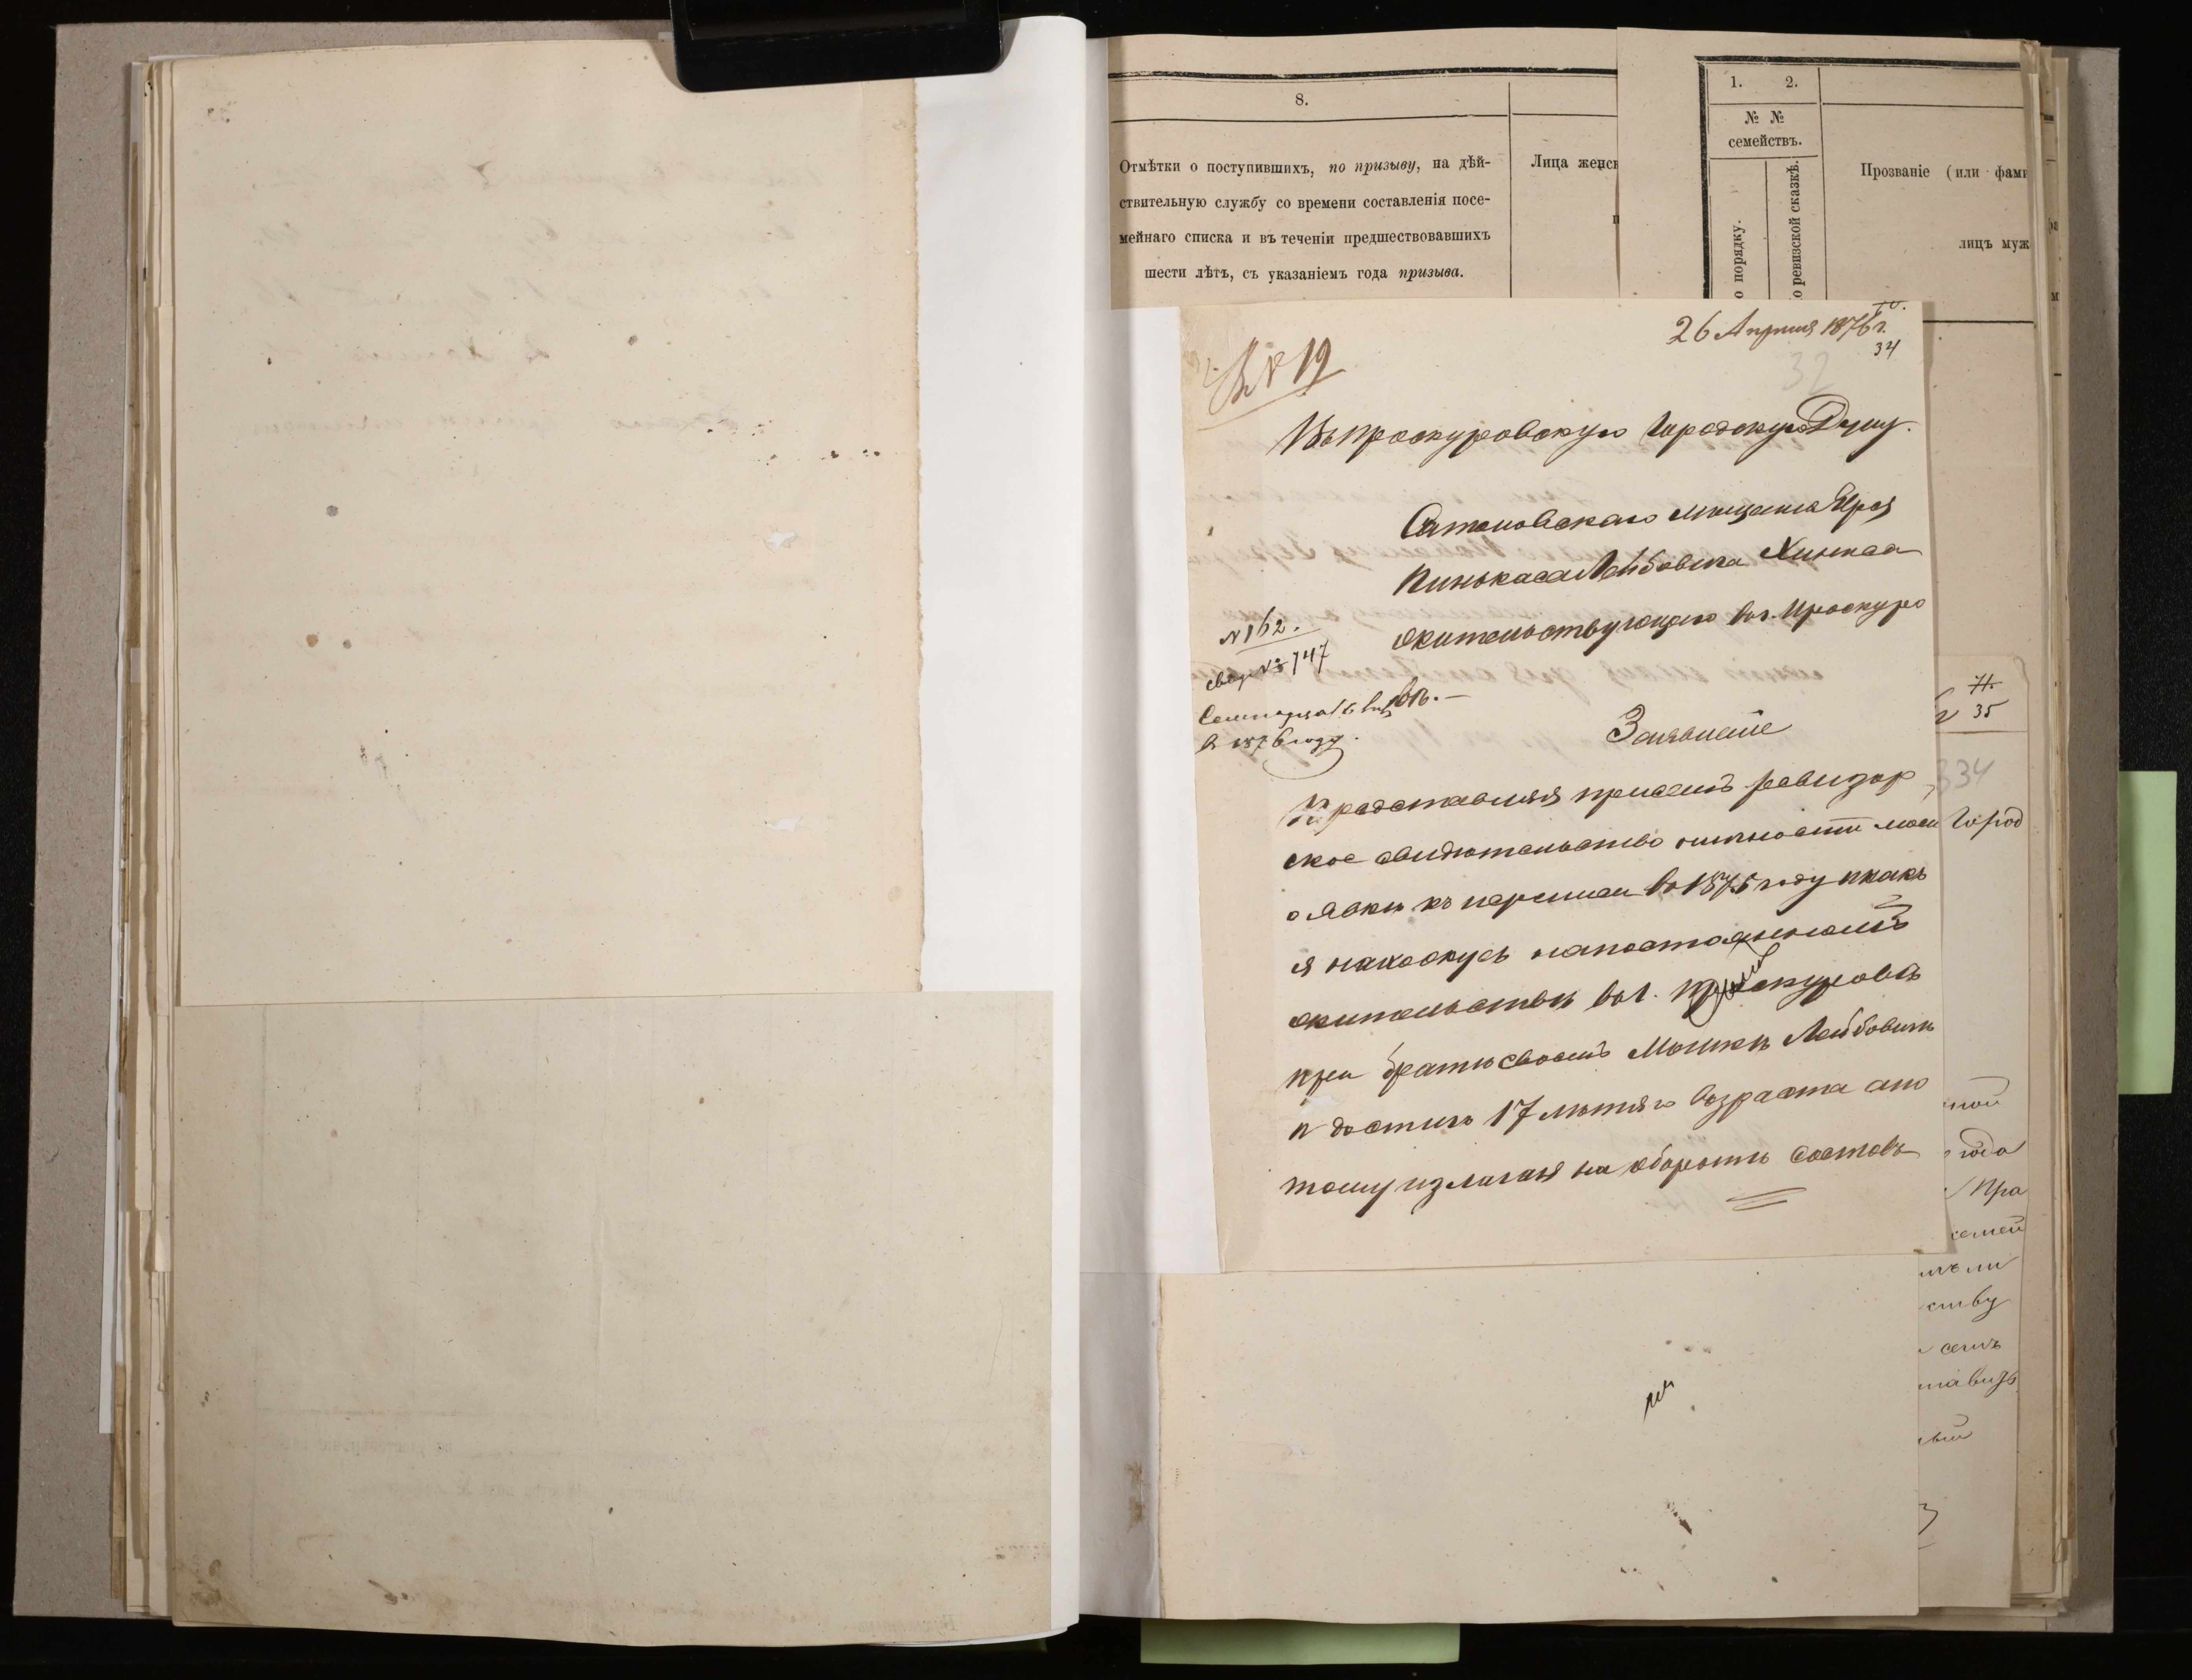 8.
Отмѣтки о поступившихъ, по призыву, на дѣй-
ствительную службу со времени составленія посе-
мейнаго списка и въ теченіи предшествовавшихъ
шести лѣтъ, съ указаніемъ года призыва.
Лица женск
п
1. 2.
№ №
семействъ.
о порядку.
о ревизской сказкѣ.
Прозваніе (или фами
лицъ муж
26 Апрѣля 1876 г.
34
32
№ 19
Въ Проскуровскую Городскую Думу.
Сатановскаго мѣщанина Ерса
Пинькаса Лейбовича
жительствующаго въ г. Проскуро
вѣ.—
№ 162.
свид. № 747
в 1876 году.
Заявленіе
Представляя при семъ ревизор
ское свидѣтельство о личности моей
о явки къ переписи въ 1875 году и какъ
я нахожусь на постоянномъ
жительствѣ въ г. Проскуровѣ
при братѣ своемъ Мошкѣ Лейбовичѣ
и достигъ 17 лѣтняго возраста а по
тому излагая на оборотѣ составъ
35
334
Город
ной
года
Пра
семей
ству
семъ